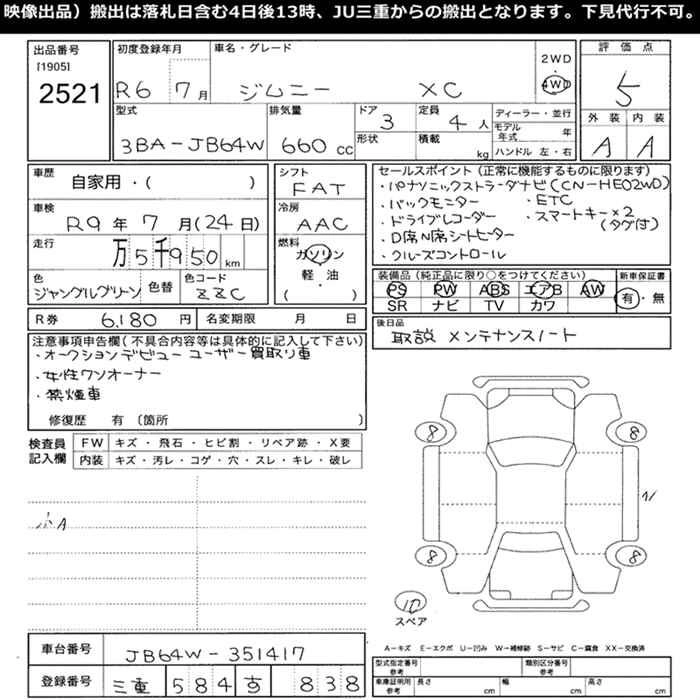 映像出品）搬出は落札日含む4日後13時、JU三重からの搬出となります。下見代行不可。
出品番号
[1905]
2521
初度登録年月
R6 7月
車名・グレード
ジムニー XC
2WD
4WD
評価点
5
外装 内装
A A
型式
3BA-JB64W
排気量
660 CC
ドア
3
形状
定員
4人
積載
kg
ディーラー・並行
モデル年式 年
ハンドル 左・右
車歴
自家用・( )
車検
R9年7月(24日)
走行
万5千950 km
色
ジャングルグリーン
色替
色コード
ZZC
シフト
FAT
冷房
AAC
燃料
ガソリン
軽・油
( )
セールスポイント（正常に機能するものに限ります）
・パナソニックストラーダナビ(CN-HE02WD)
・バックモニター ・ETC
・ドライブレコーダー ・スマートキー×2
(タグ付)
・D席N席シートヒーター
・クルーズコントロール
装備品（純正品に限り○をつけてください）
PS PW ABS エアB AW
SR ナビ TV カワ
新車保証書
有・無
R券 6,180 円
名変期限 月 日
後日品
取説 メンテナンスノート
注意事項申告欄(不具合内容等は具体的に記入して下さい)
・オークションデビュー ユーザー買取り車
・女性ワンオーナー
・禁煙車
修復歴 有〔箇所 〕
検査員記入欄
FW キズ・飛石・ヒビ割・リペア跡・X要
内装 キズ・汚レ・コゲ・穴・スレ・キレ・破レ
小A
8
8
8
8
10
スペア
A-キズ E-エクボ U-凹み W-補修跡 S-サビ C-腐食 XX-交換済
車台番号
JB64W-351417
登録番号
三重 584 す 838
型式指定番号
参考
類別区分番号
参考
車庫証明用
参考
長さ cm
幅 cm
高さ cm